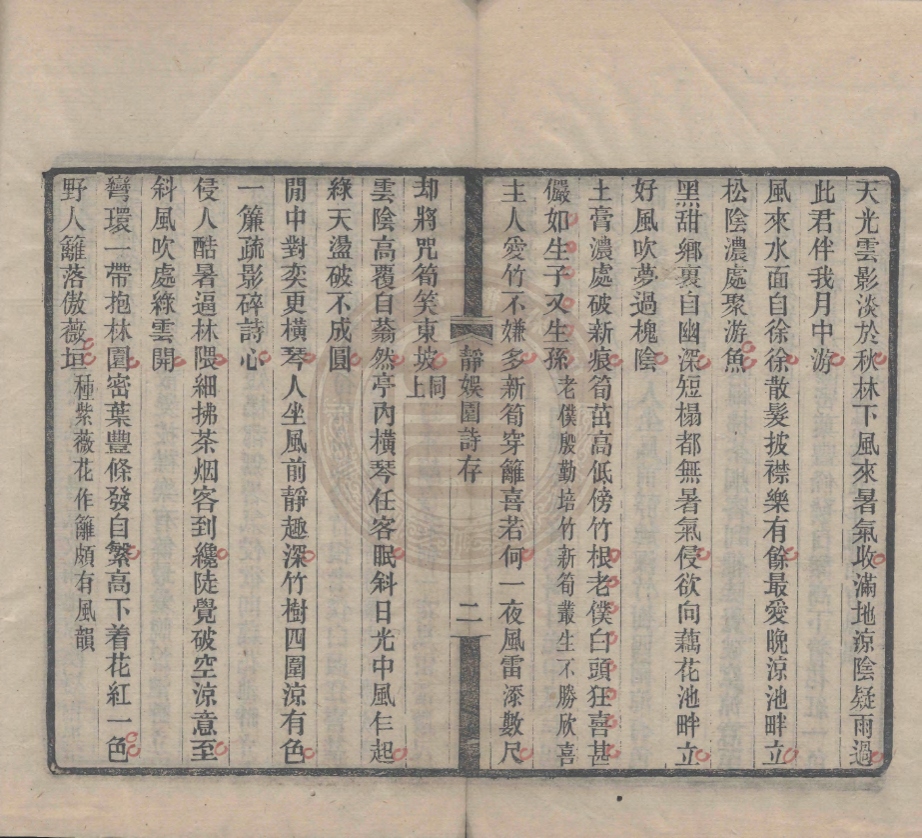 天光雲影淡於秋林下風來暑氣收滿地涼陰疑雨過
此君伴我月中游
風來水面自徐徐散髮披襟樂有餘最愛晚涼池畔立
松陰濃處聚游魚
黑甜鄉裏自幽深短榻都無暑氣侵欲向藕花池畔立
好風吹夢過槐陰
土膏濃處破新痕筍茁高低傍竹根老僕白頭狂喜甚
儼如生子又生孫老僕殷勤培竹新筍叢生不勝欣喜
主人愛竹不嫌多新筍穿籬喜若何一夜風雷添數尺
却將咒筍笑東坡同上
雲陰高覆自蓊然亭內橫琴任客眠斜日光中風乍起
綠天盪破不成圓
閒中對奕更橫琴人坐風前靜趣深竹樹四圍涼有色
一簾疏影碎詩心
侵人酷暑逼林隈細拂茶烟客到纔陡覺破空涼意至
斜風吹處綠雲開
彎環一帶抱林園密葉豐條發自繁高下着花紅一色
野人籬落傲薇垣種紫薇花作籬頗有風韻
靜娛園詩存
二